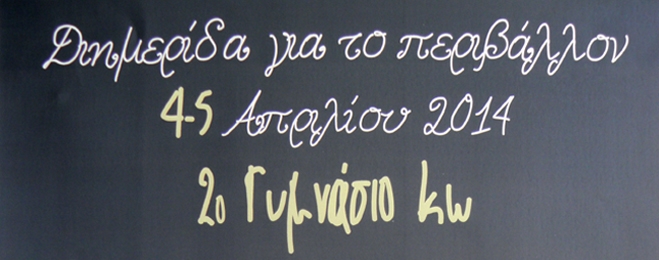 Διημερίδα για το περιβάλλον
4-5 Απριλίου 2014
2ο Γυμνάσιο Κω